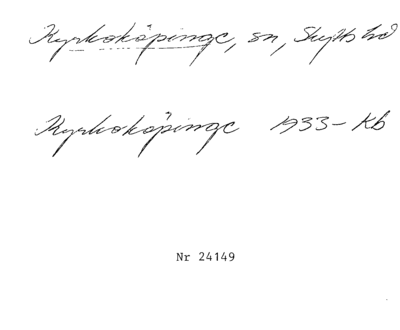 Kyrkoköpinge, sn, Skytts hd
Kyrkoköpinge 1933– Kb
Nr 24149